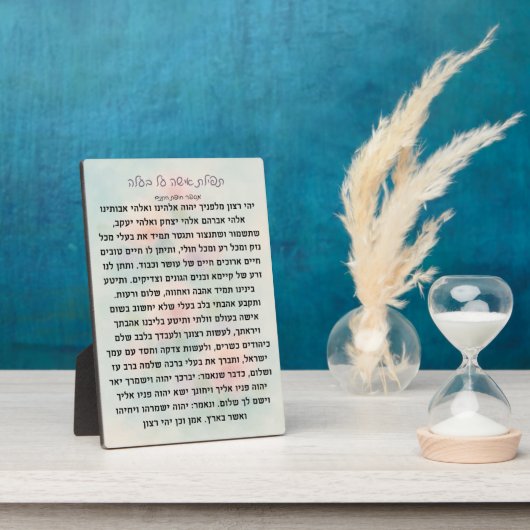 תפילת אישה על בעלה
מספר חופת חתנים
יהי רצון מלפניך יהוה אלהינו ואלהי אבותינו
אלהי אברהם אלהי יצחק ואלהי יעקב,
שתשמור ושתנצור ותנטר תמיד את בעלי מכל
נזק ומכל רע ומכל חולי, ותיתן לו חיים טובים
חיים ארוכים חיים של עושר וכבוד. ותתן לנו
זרע של קיימא ובנים הגונים וצדיקים. ותיטע
בינינו תמיד אהבה ואחווה, שלום ורעות.
ותקבע אהבתי בלב בעלי שלא יחשוב בשום
אישה בעולם זולתי ותיטע בליבנו אהבתך
ויראתך, לעשות רצונך ולעבדך בלבב שלם
כיהודים כשרים, ולעשות צדקה וחסד עם עמך
ישראל, ותברך את בעלי ברכה שלמה ברב עז
ושלום, כדבר שנאמר: יברכך יהוה וישמרך יאר
יהוה פניו אליך ויחונך ישא יהוה פניו אליך
וישם לך שלום. ונאמר: יהוה ישמרהו ויחיהו
ואשר בארץ. אמן וכן יהי רצון